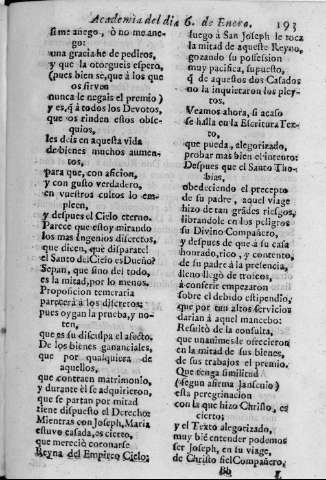 Academia del dia 6. de Enero.
193
si me anego, ò no me ane-
go:
una gracia he de pediros,
y que la otorgueis espero,
(pues bien se, que à los que
os sirven
nunca le negais el premio)
y es, q̃ à todos los Devotos,
que os rinden estos obse-
quios,
les deis en aquesta vida
de bienes muchos aumen-
tos,
para que, con aficion,
y con gusto verdadero,
en vuestros cultos lo em-
pleen,
y despues el Cielo eterno.
Parece que estoy mirando
los mas Ingenios discretos,
que dicen, què disparate!
el Santo del Cielo es Dueño?
Sepan, que sino del todo,
es la mitad, por lo menos.
Proposicion temeraria
parecerà à los discretos;
pues oygan la prueba, y no-
ten,
que es su disculpa el afecto.
De los bienes gananciales,
que por qualquiera de
aquellos,
que contraen matrimonio,
y durante èl se adquirieron,
que se partan por mitad
tiene dispuesto el Derecho:
Mientras con Joseph, Maria
estuvo casada, es cierto,
que mereciò coronarse
Reyna del Empireo Cielo;
luego à San Joseph le toca
la mitad de aqueste Reyno,
gozando su possession
muy pacifica, supuesto,
q̃ de aquestos dos Casados
no la inquietaron los pley-
tos.
Veamos ahora, si acaso
se halla en la Escritura Tex-
to,
que pueda, alegorizado,
probar mas bien el intento:
Despues que el Santo Tho-
bias,
obedeciendo el precepto
de su padre, aquel viage
hizo de tan grādes riesgos,
librandole en los peligros
su Divino Compañero,
y despues de que à su casa
honrado, rico, y contento,
de su padre à la presencia,
lleno llegò de trofeos,
à conferir empezaron
sobre el debido estipendio,
que por tan altos servicios
darian à aquel mancebo:
Resultò de la consulta,
que unanimes le ofrecieron
en la mitad de sus bienes,
de sus trabajos el premio.
Que tenga similitud
(segun afirma Jansenio)
esta peregrinacion
con la que hizo Christo, es
cierto;
y el Texto alegorizado,
muy biē entender podemos
ser Joseph, en su viage,
de Christo fiel Compañero,
Bb